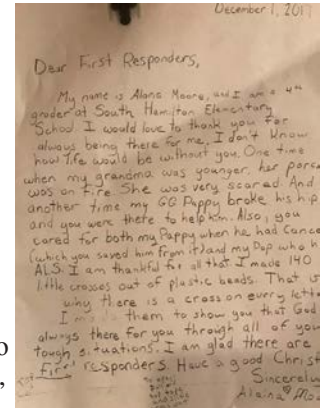 December 1, 201
Dear First Responders,
My name is Alana Moore, and I am a 4th
grader at South Hamilton Elementary
School. I would love to thank you for
always being there for me. I don't know
how life would be without you. One time
when my grandma was younger, her porch
was on fire. She was very scared. And
another time my GG Pappy broke his hip
and you were there to help him. Also, you
cared for both my Pappy when he had Cance
(which you saved him from it) and my Pop who h
ALS. I am thankful for all that I made 140
little crosses out of plastic beads. That is
why there is a cross on every lette
I made them to show you that God
always there for you through all of you
tough situations. I am glad there are
First responders. Have a good Christ
Sincerely
Alaina Moo
o
,